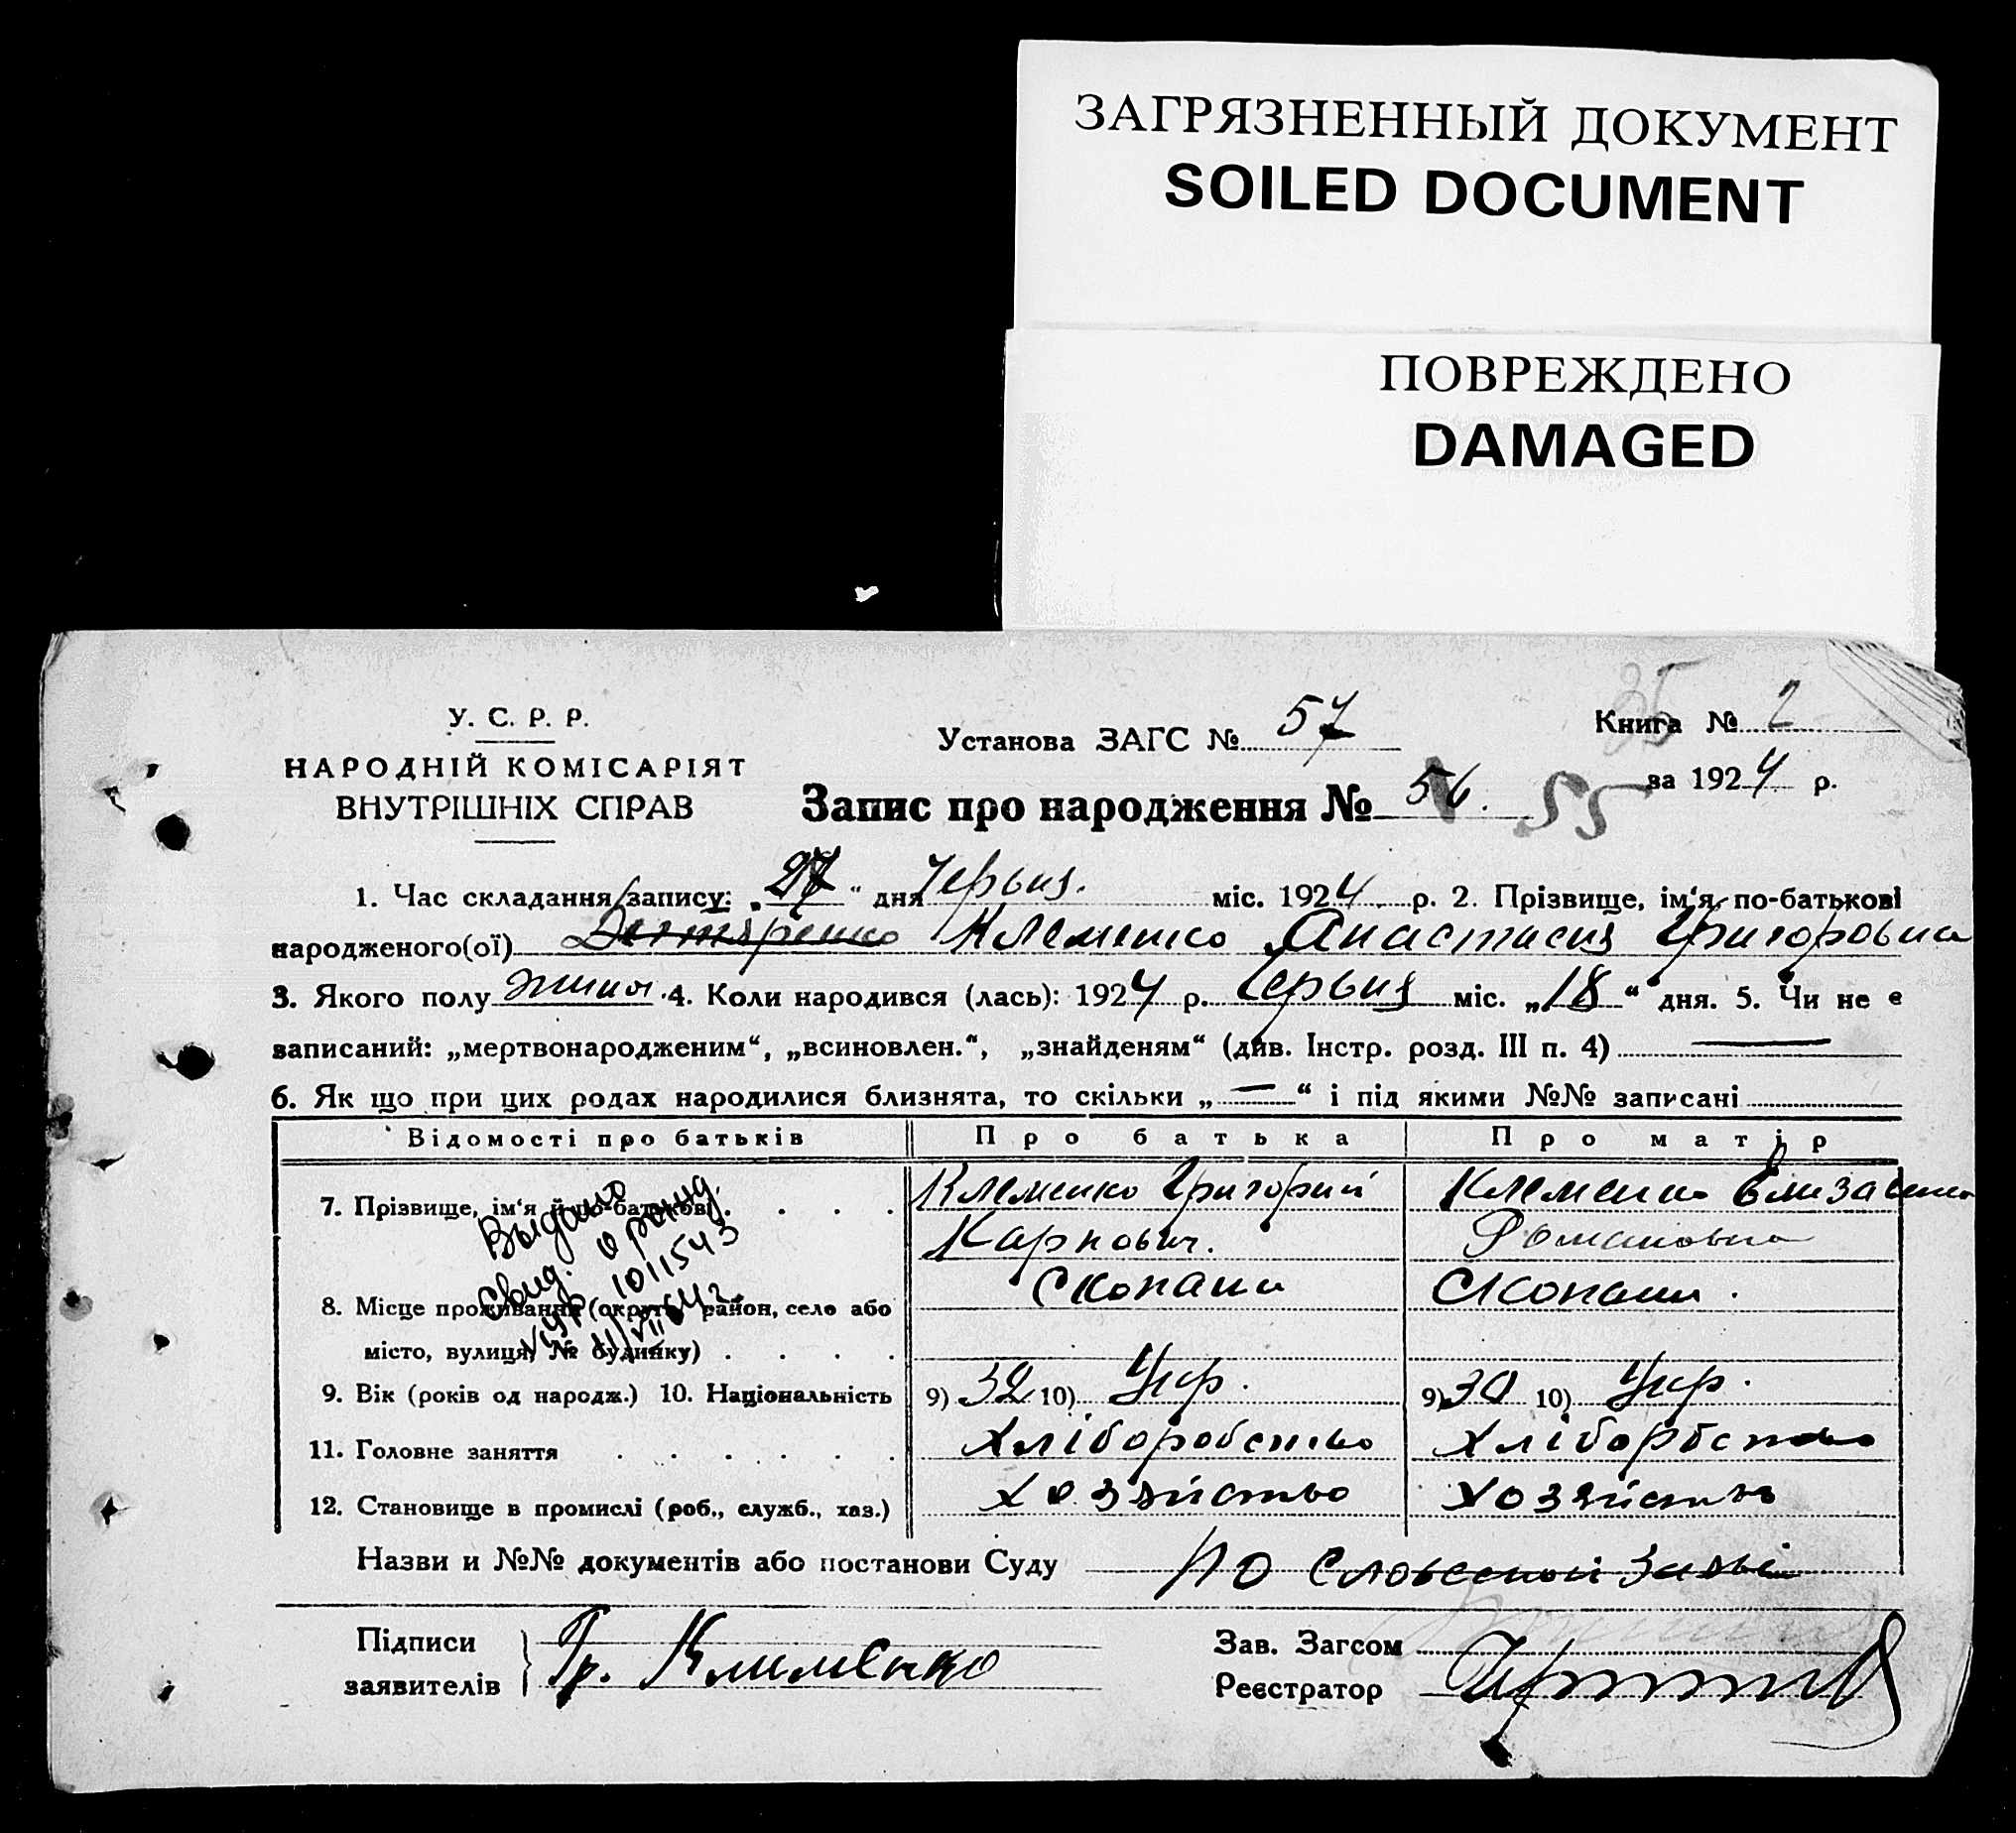 ЗАГРЯЗНЕННЫЙ ДОКУМЕНТ
SOILED DOCUMENT
ПОВРЕЖДЕНО
DAMAGED
35
У. С. Р. Р.
НАРОДНІЙ КОМІСАРІЯТ
ВНУТРІШНІХ СПРАВ
Установа ЗАГС № 57
Книга № 2
за 1924 р.
Запис про народження № 56. 55
1. Час складання запису: „27“ дня Червня. міс. 1924 р. 2. Прізвище, ім‘я, по-батькові
народженого(ої) Дегтяренко Клеменко Анастасия Григоровна
3. Якого полу жиноч. 4. Коли народився (лась): 1924 р. Червня міс. „18“ дня. 5. Чи не є
записаний: „мертвонародженим“, „всиновлен.“, „знайденям“ (див. Інстр. розд. III п. 4) —
6. Як що при цих родах народилися близнята, то скільки „—“ і під якими №№ записані
Відомості про батьків Про батька Про матір
7. Прізвище, ім‘я й по-батькові . . . . Клеменко Григорий Клеменко Елизавета
Карпович. Романовна
8. Місце проживання (округа, район, село або Скопани Скопани.
місто, вулиця, № будинку) . . . .
9. Вік (років од народж.) 10. Національність 9) 32 10) Укр. 9) 30 10) Укр.
11. Головне заняття . . . . . . Хліборобство Хліборбство
12. Становище в промислі (роб., служб., хаз.) Хозяйство Хозяйство
Выдано
Свид. о рожд.
1011543
Назви и №№ документів або постанови Суду По Словесной Заяві
Підписи
заявителів Гр. Клименко
Зав. Загсом
Реєстратор